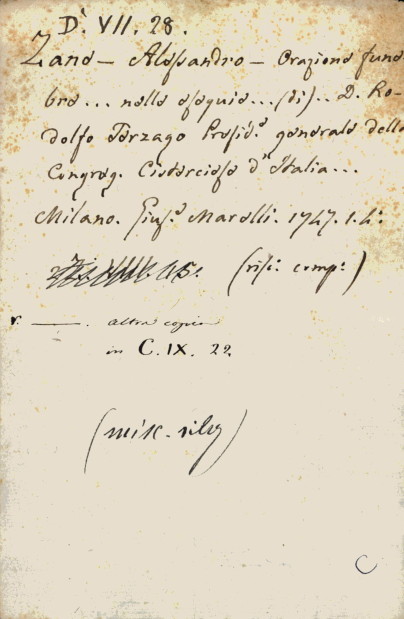 D' VII. 28.
Zana - Alessandro - Orazione fune
bre... nelle esequie... (di)... D. Ro-
dolfo Terzago Presid.e generale della
Congreg. Cisterciese d'Italia...
Milano. Gius.e Marelli. 1747. 1. 4.°
(risc. comp.)
v. ——. altra copia
in C. IX. 22
(misc.
C